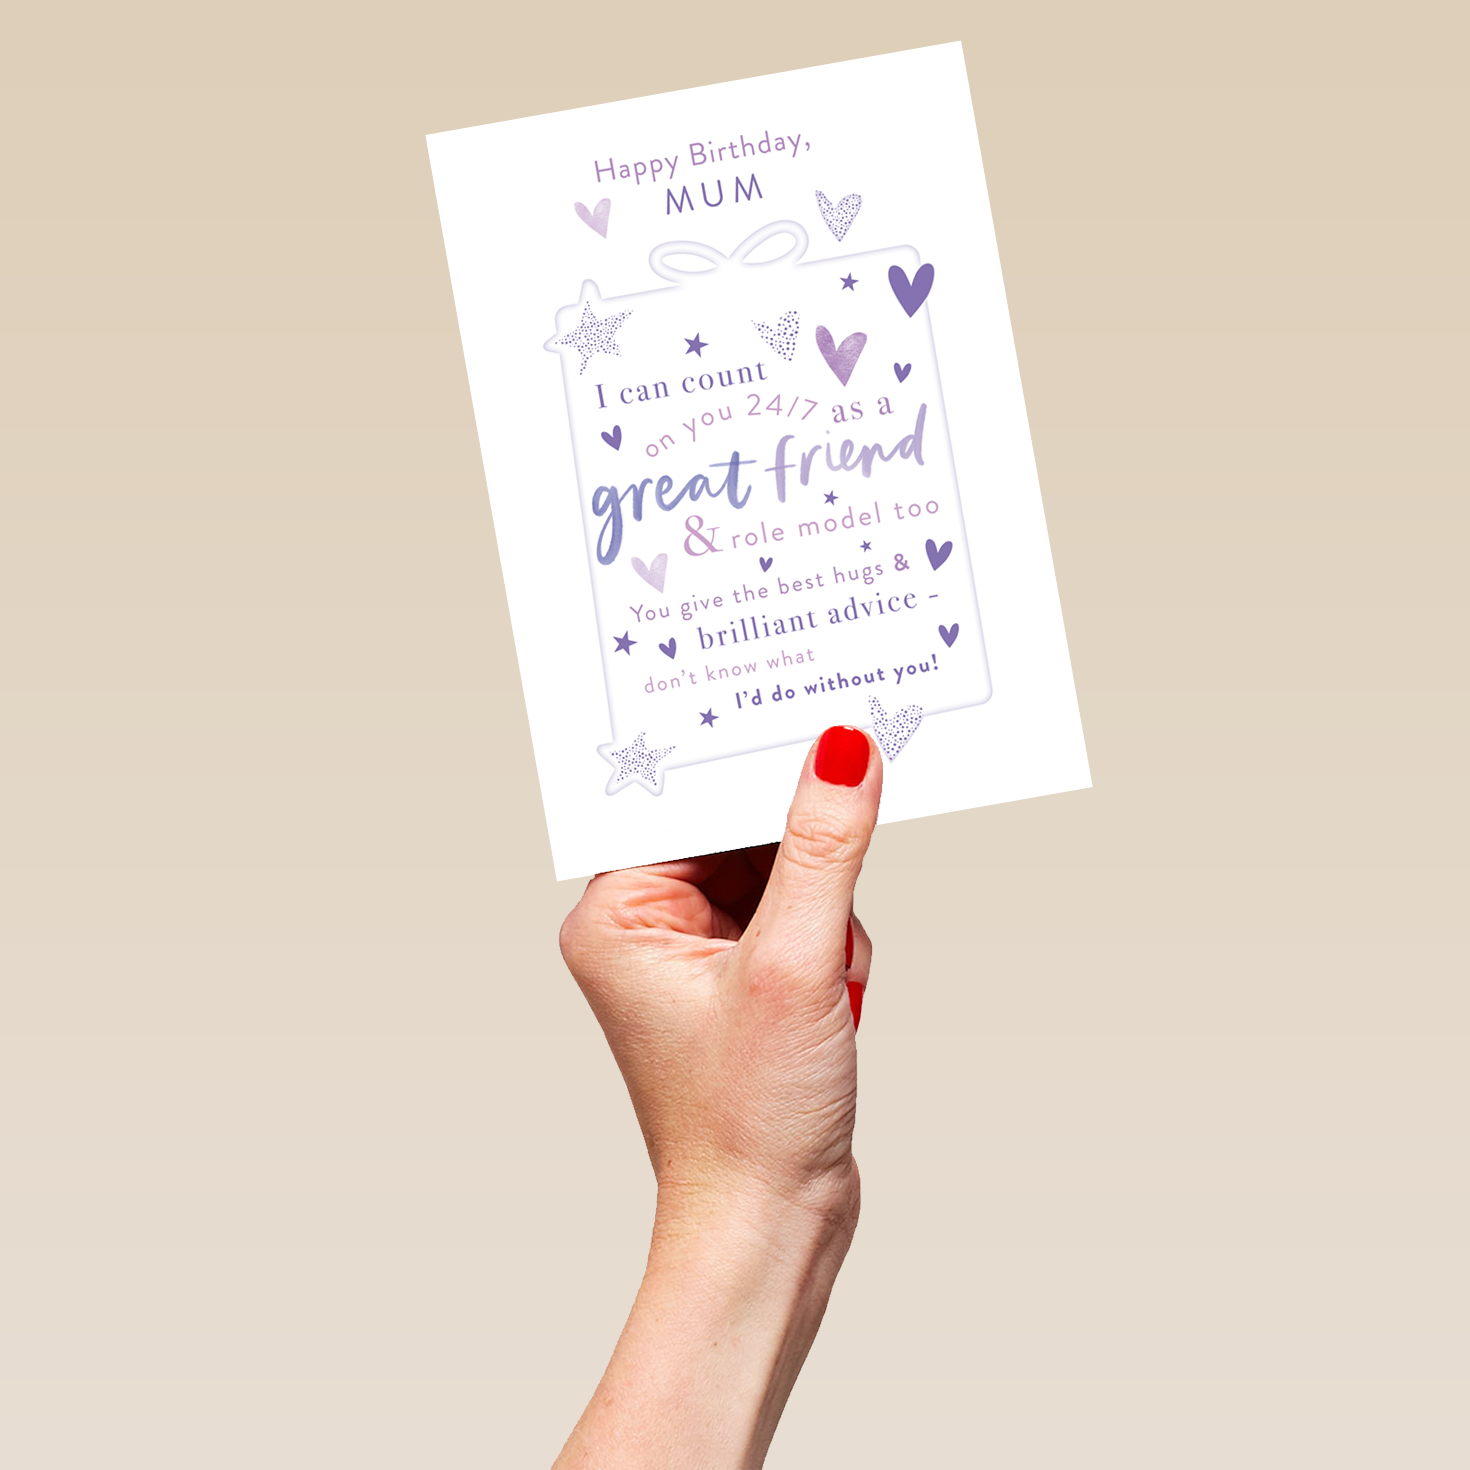 Happy Birthday,
MUM
I can count
on you 24/7 as a
great friend
& role model too
You give the best hugs &
brilliant advice -
don't know what
I'd do without you!